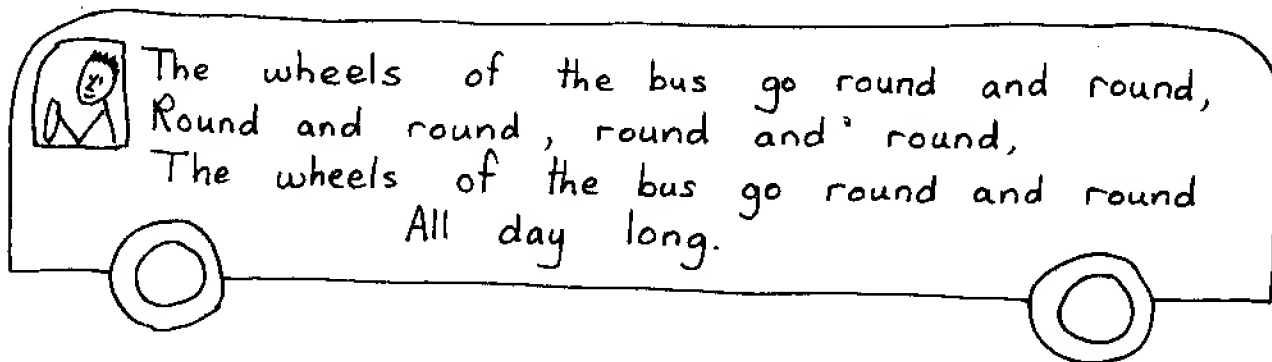 The wheels of the bus go round and round,
Round and round, round and round,
The wheels of the bus go round and round
All day long.